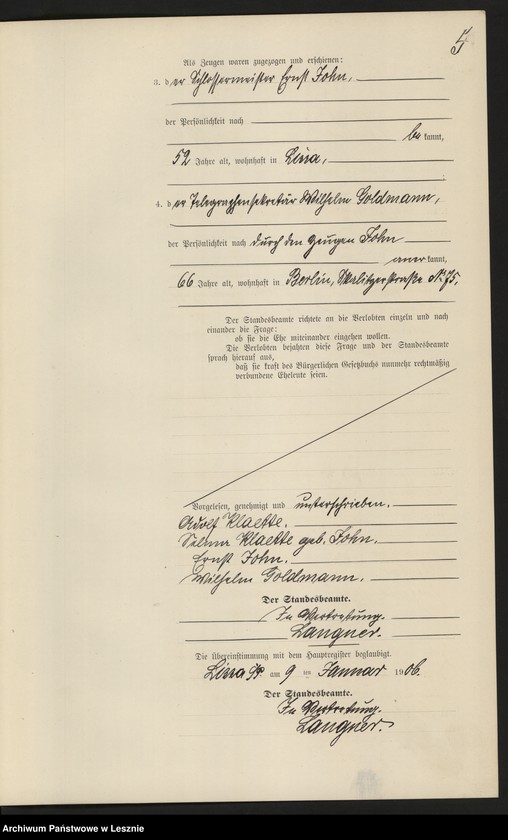 5
Als Zeugen waren zugezogen und erschienen:
3. der Schlossermeister Ernst John,
der Persönlichkeit nach
bekannt,
52 Jahre alt, wohnhaft in Lissa,
4. der Telegraphensekretär Wilhelm Goldmann,
der Persönlichkeit nach durch den Zeugen John
anerkannt,
66 Jahre alt, wohnhaft in Berlin, Skalitzerstraße No 75.
Der Standesbeamte richtete an die Verlobten einzeln und nach
einander die Frage:
ob sie die Ehe miteinander eingehen wollen.
Die Verlobten bejahten diese Frage und der Standesbeamte
sprach hierauf aus,
daß sie kraft des Bürgerlichen Gesetzbuchs nunmehr rechtmäßig
verbundene Eheleute seien.
Vorgelesen, genehmigt und unterschrieben.
Adolf Klaette.
Selma Klaette geb. John.
Ernst John.
Wilhelm Goldmann.
Der Standesbeamte.
In Vertretung.
Langner.
Die Übereinstimmung mit dem Hauptregister beglaubigt.
Lissa i/P. am 9 ten Januar 1906.
Der Standesbeamte.
In Vertretung.
Langner.
Archiwum Państwowe w Lesznie